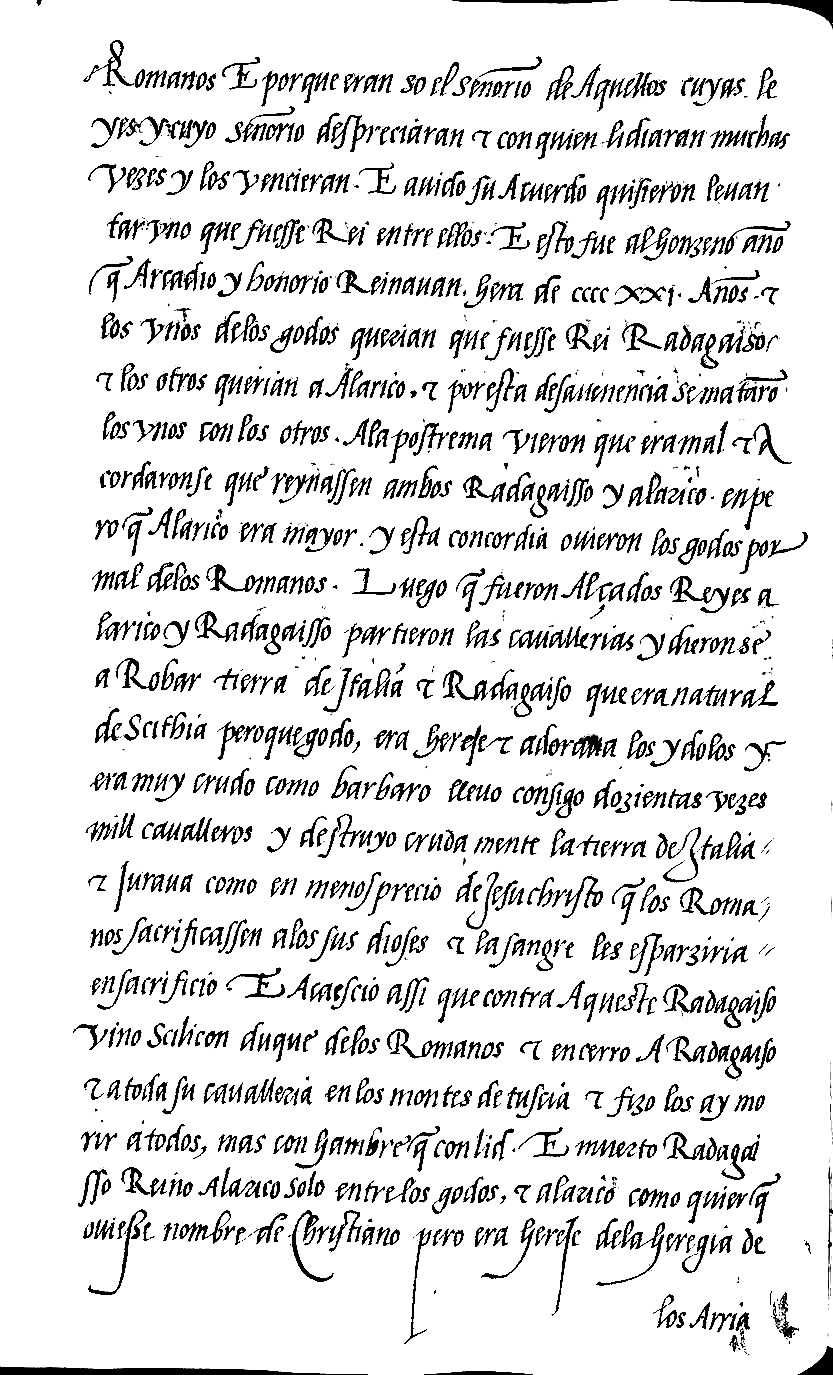 Romanos E porque eran so el señorio de Aquellos cuyas le
yes y cuyo señorio despreciaran τ con quien lidiaran muchas
vezes y los vencieran. E auido su Acuerdo quisieron leuan
tar yno que fuesse Rei entre ellos. E esto fue al honzeno año
q̃ Arcadio y honorio Reinauan. hera de cccc xxj. Años. τ
los vnos delos godos querian que fuesse Rei Radagaiso
τ los otros querian a Alarico. τ por esta desauenencia se matarõ
los vnos con los otros. Ala postrema vieron que era mal τ A
cordaronse que reynassen ambos Radagaisso y alarico. enpe
ro q̃ Alarico era mayor. y esta concordia ouieron los godos por
mal delos Romanos. Luego q̃ fueron Alçados Reyes a
larico y Radagaisso partieron las cauallerias y dieron se
a Robar tierra de Italia τ Radagaiso que era natural
de Scithia pero que godo, era hereje τ adoraua los ydolos y
era muy crudo como barbaro lleuo consigo dozientas vezes
mill caualleros y destruyo cruda mente la tierra de Italia
τ Juraua como en menosprecio de Jesuchristo q̃ los Roma
nos sacrificassen alos sus dioses τ la sangre les esparziria
en sacrificio. E Acaescio assi que contra Aqueste Radagaiso
vino Scilicon duque delos Romanos τ encerro A Radagaiso
τ a toda su caualleria en los montes de tuscia τ fizo los ay mo
rir a todos, mas con hambre q̃ con lid. E muerto Radagai
sso Reino Alarico solo entre los godos, τ alarico como quier q̃
ouiesse nombre de Christiano pero era hereje dela heregia de
los Arria